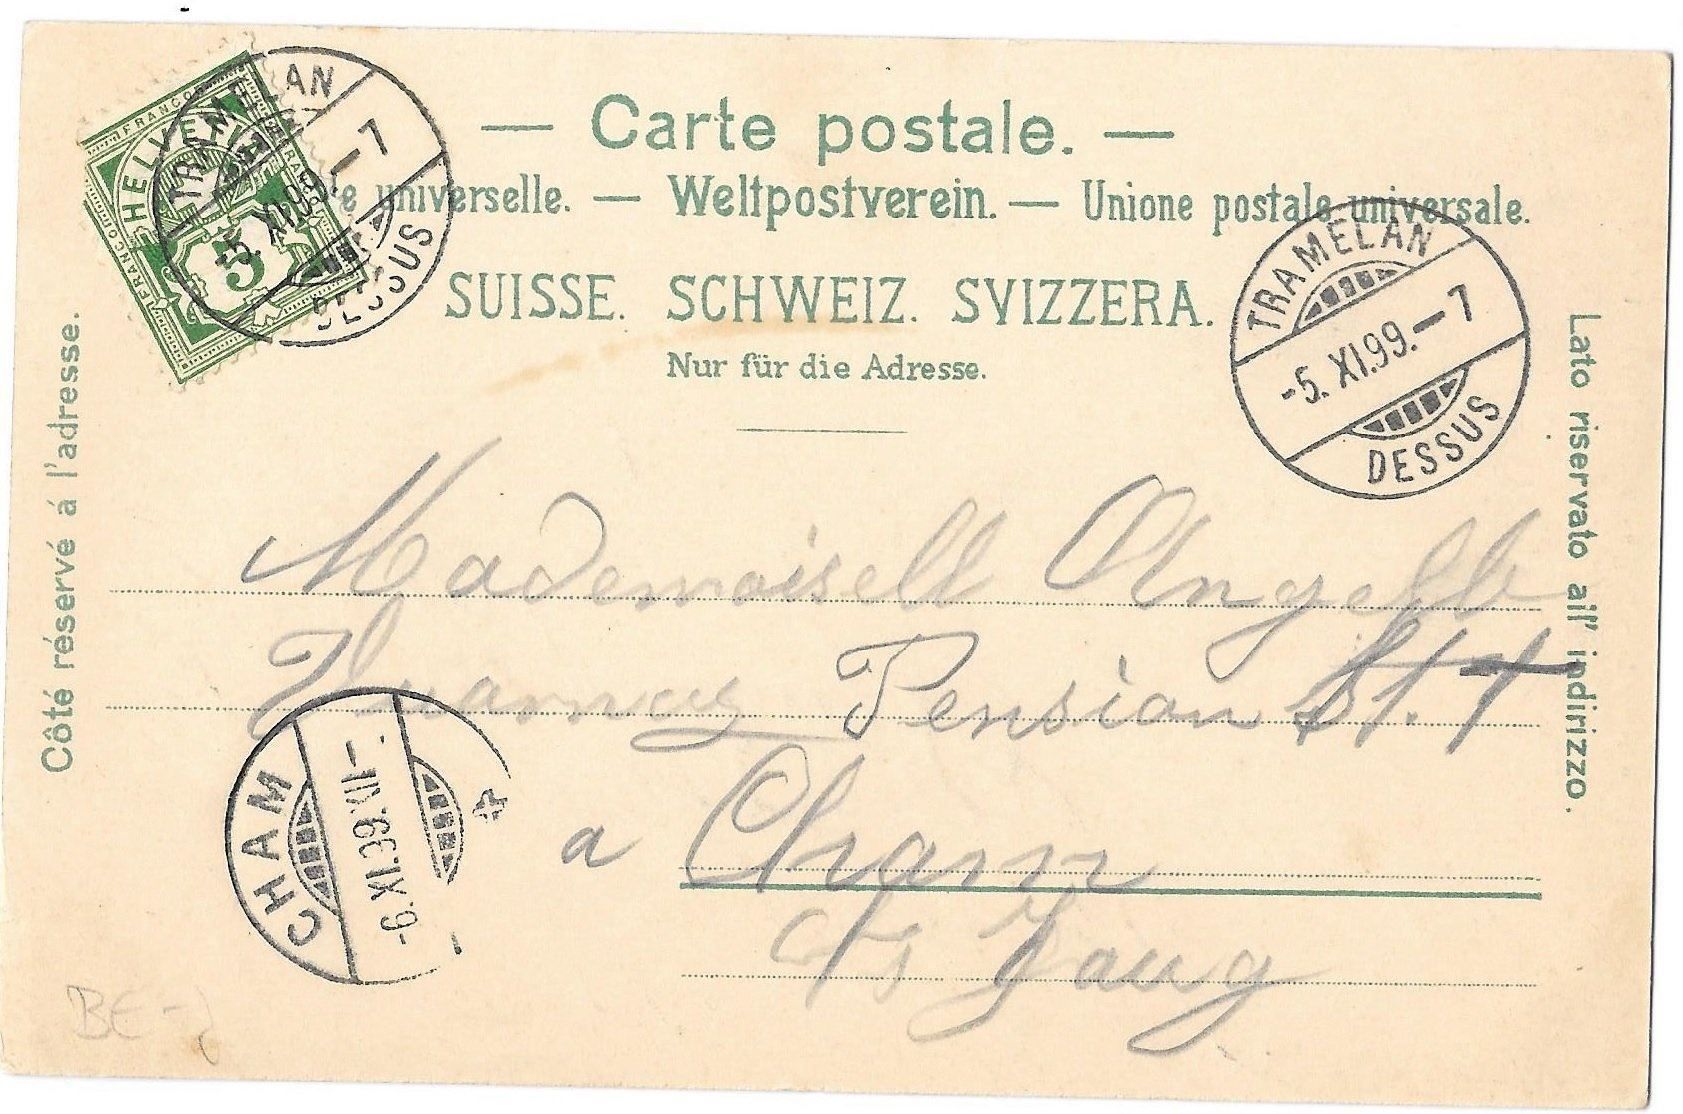 — Carte postale. —
universelle. — Weltpostverein. — Unione postale universale.
SUISSE. SCHWEIZ. SVIZZERA.
Nur für die Adresse.
FRANCO
HELVETIA
FRANCO
5
TRAMELAN
-5. XI.99.-7
DESSUS
TRAMELAN
-5. XI.99.-7
DESSUS
Côté réservé á l'adresse.
Lato riservato all' indirizzo.
Mademoisell Angelle
Pension St.
a Cham
Zoug
CHAM
-6.XI.99.XII-
BE-